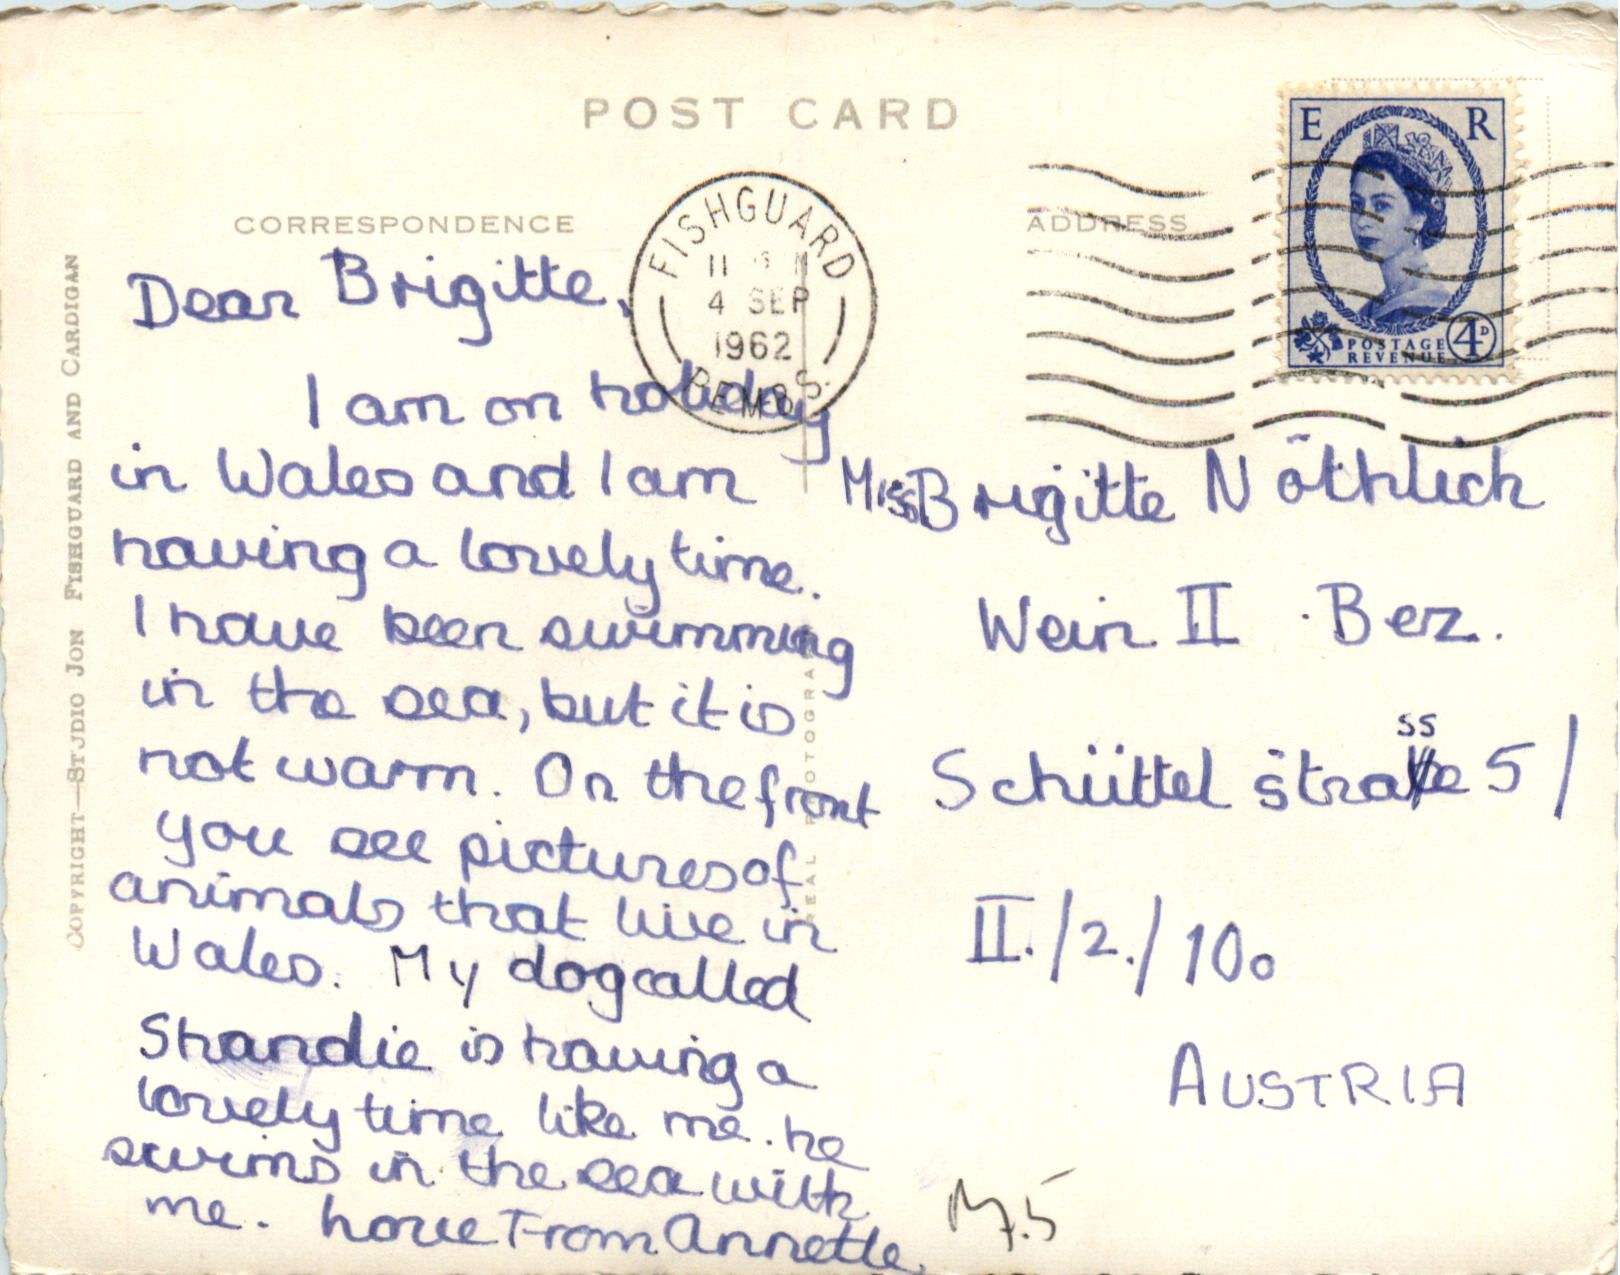 POST CARD
CORRESPONDENCE
ADDRESS
E R
POSTAGE
REVENUE
4D
FISHGUARD
4 SEP
1962
PEMBS.
Dear Brigitte,
I am on holiday
in Wales and I am
having a lovely time.
I have been swimming
in the sea, but it is
not warm. On the front
you see pictures of
animals that live in
Wales. My dog called
Shandie is having a
lovely time like me. he
swims in the sea with
me. Love From Annette
Miss Brigitte Nöthlich
Wein II Bez.
Schüttel strasse 5/
II./2./10.
AUSTRIA
COPYRIGHT—STUDIO JON FISHGUARD AND CARDIGAN
REAL PHOTOGRA